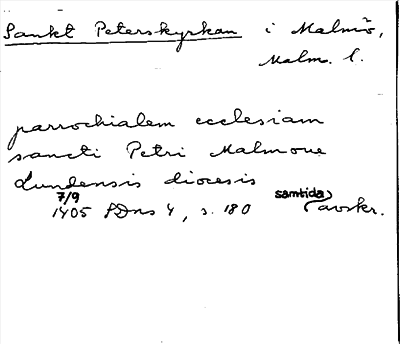 Sankt Peterskyrkan i Malmö,
Malm. l.
parrochialem ecclesiam
sancti Petri Malmoue
Lundensis diocesis
7/9 samtida
1405 SDns 4, s. 180 (avskr.